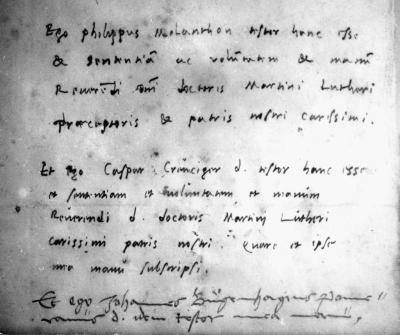 Ego philippus Melanthon testor hanc esse
& sententiā ac voluntatem & manū
Reverēdi domī doctoris Martini Lutheri
præceptoris & patris nostri carissimi.
Et ego Caspar Creuciger d. testor hanc esse
et sententiam et voluntatem et manum
Reverendi d. doctoris Martini Lutheri
carissimi patris nostri. Quare et ipse
mea manu subscripsi.
Et ego Johannes Bugenhagius Pome
ranus d. idem testor mea manu,